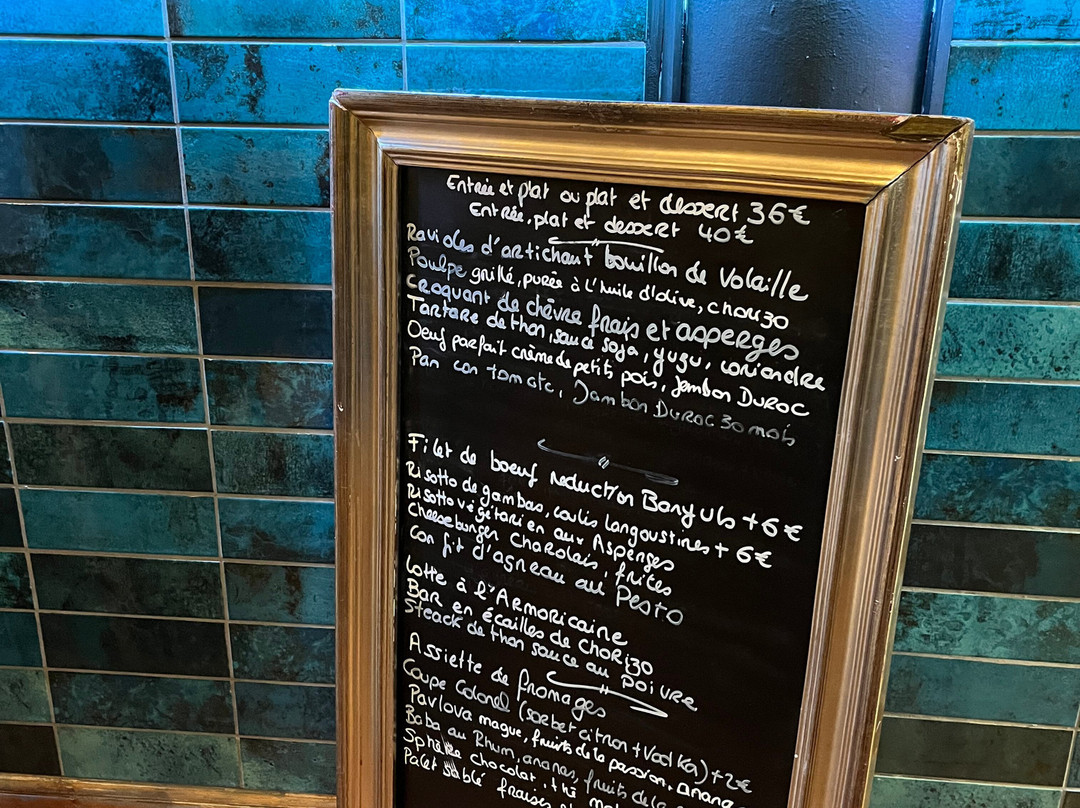 Entrée et plat ou plat et dessert 36€
Entrée, plat et dessert 40€
Ravioles d'artichaut bouillon de Volaille
Poulpe grillé, purée à l'huile d'olive, chorizo
Croquant de chèvre frais et asperges
Tartare de thon, sauce soja, yuzu, coriandre
Oeuf parfait crème de petits pois, Jambon Duroc
Pan con tomate, Jambon Duroc 30 mois
Filet de boeuf reduction Banyuls + 6€
Risotto de gambas, coulis langoustines + 6€
Risotto végétarien aux Asperges
Cheeseburger Charolais, frites
Confit d'agneau au Pesto
Lotte à l'Armoricaine
Bar en écailles de chorizo
Steack de thon sauce au Poivre
Assiette de fromages
Coupe Colonel (sorbet citron + Vodka) + 2€
Pavlova mague, fruits de la passion, anana
Baba au Rhum, ananas, fruits de la
Sphère chocolat, thé
Palet sablé fraises